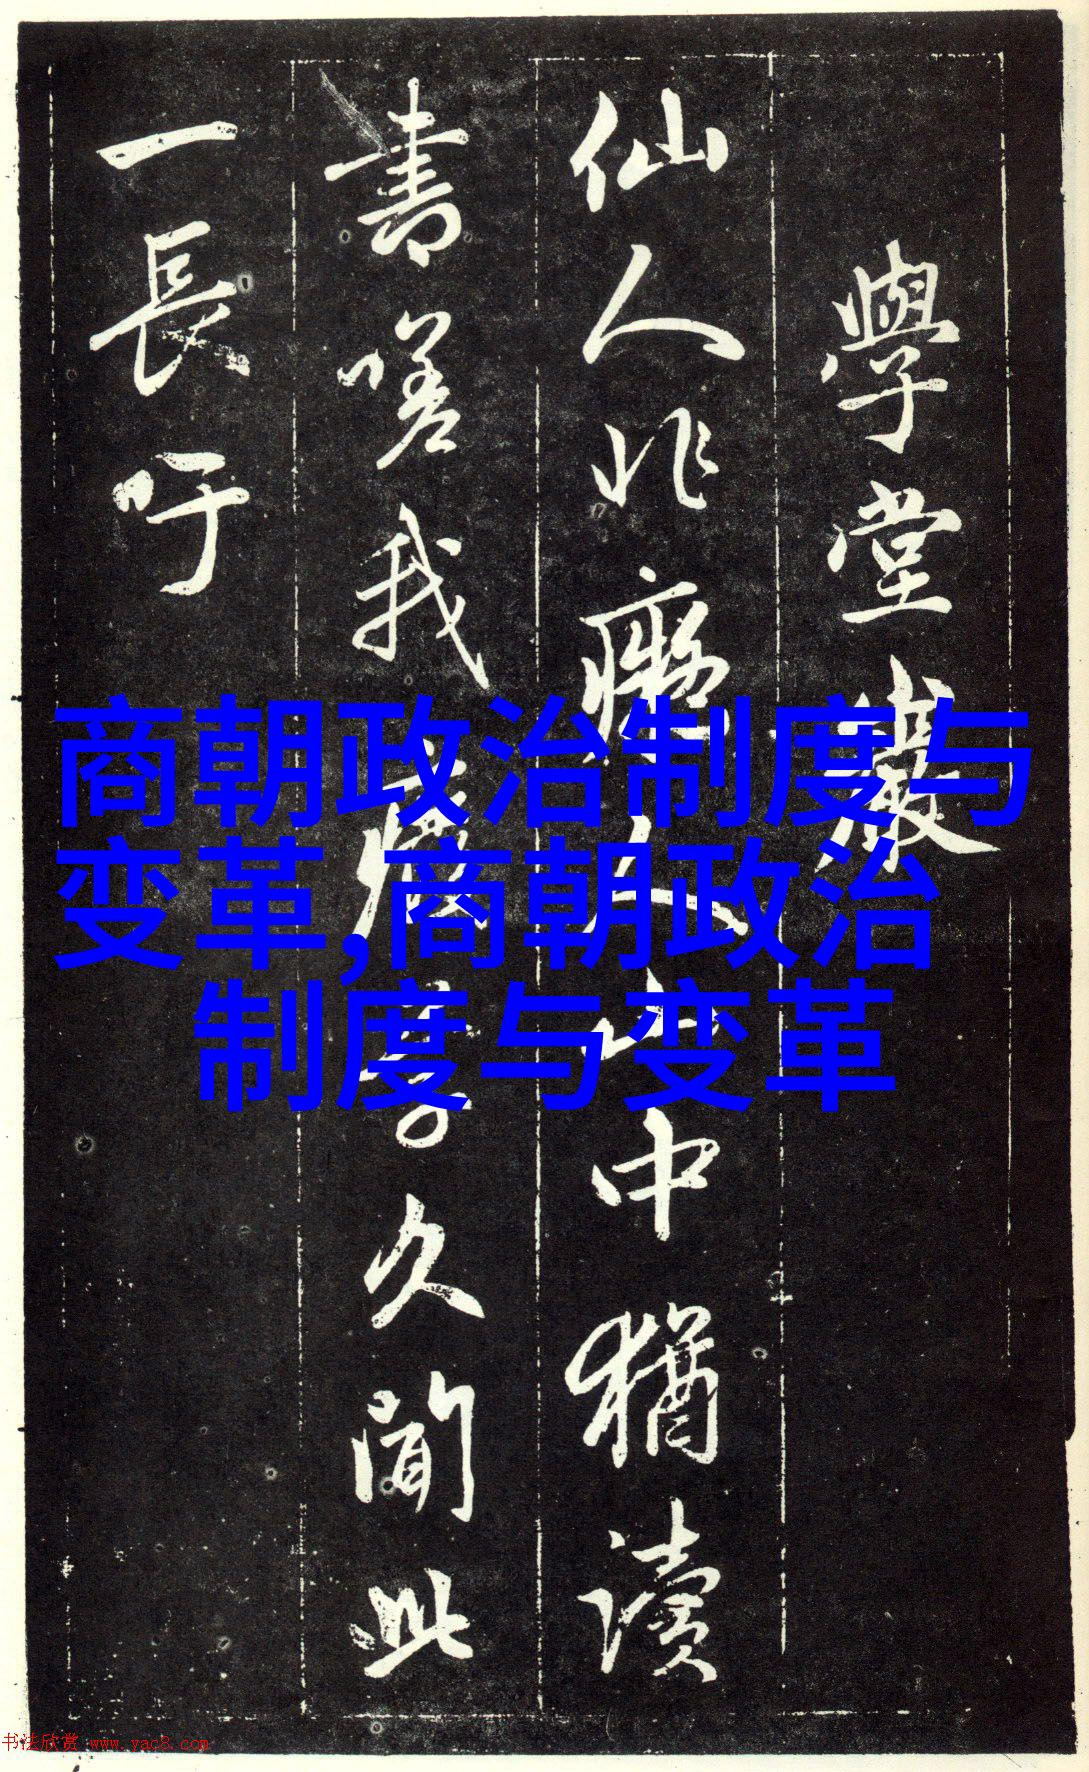 學堂巖
仙人非癯人山中猶讀
書嗟我廢學久聞此
一長吁
商朝政治制度与
变革,商朝政治
制度与变革
书法欣赏 www.yac8.com